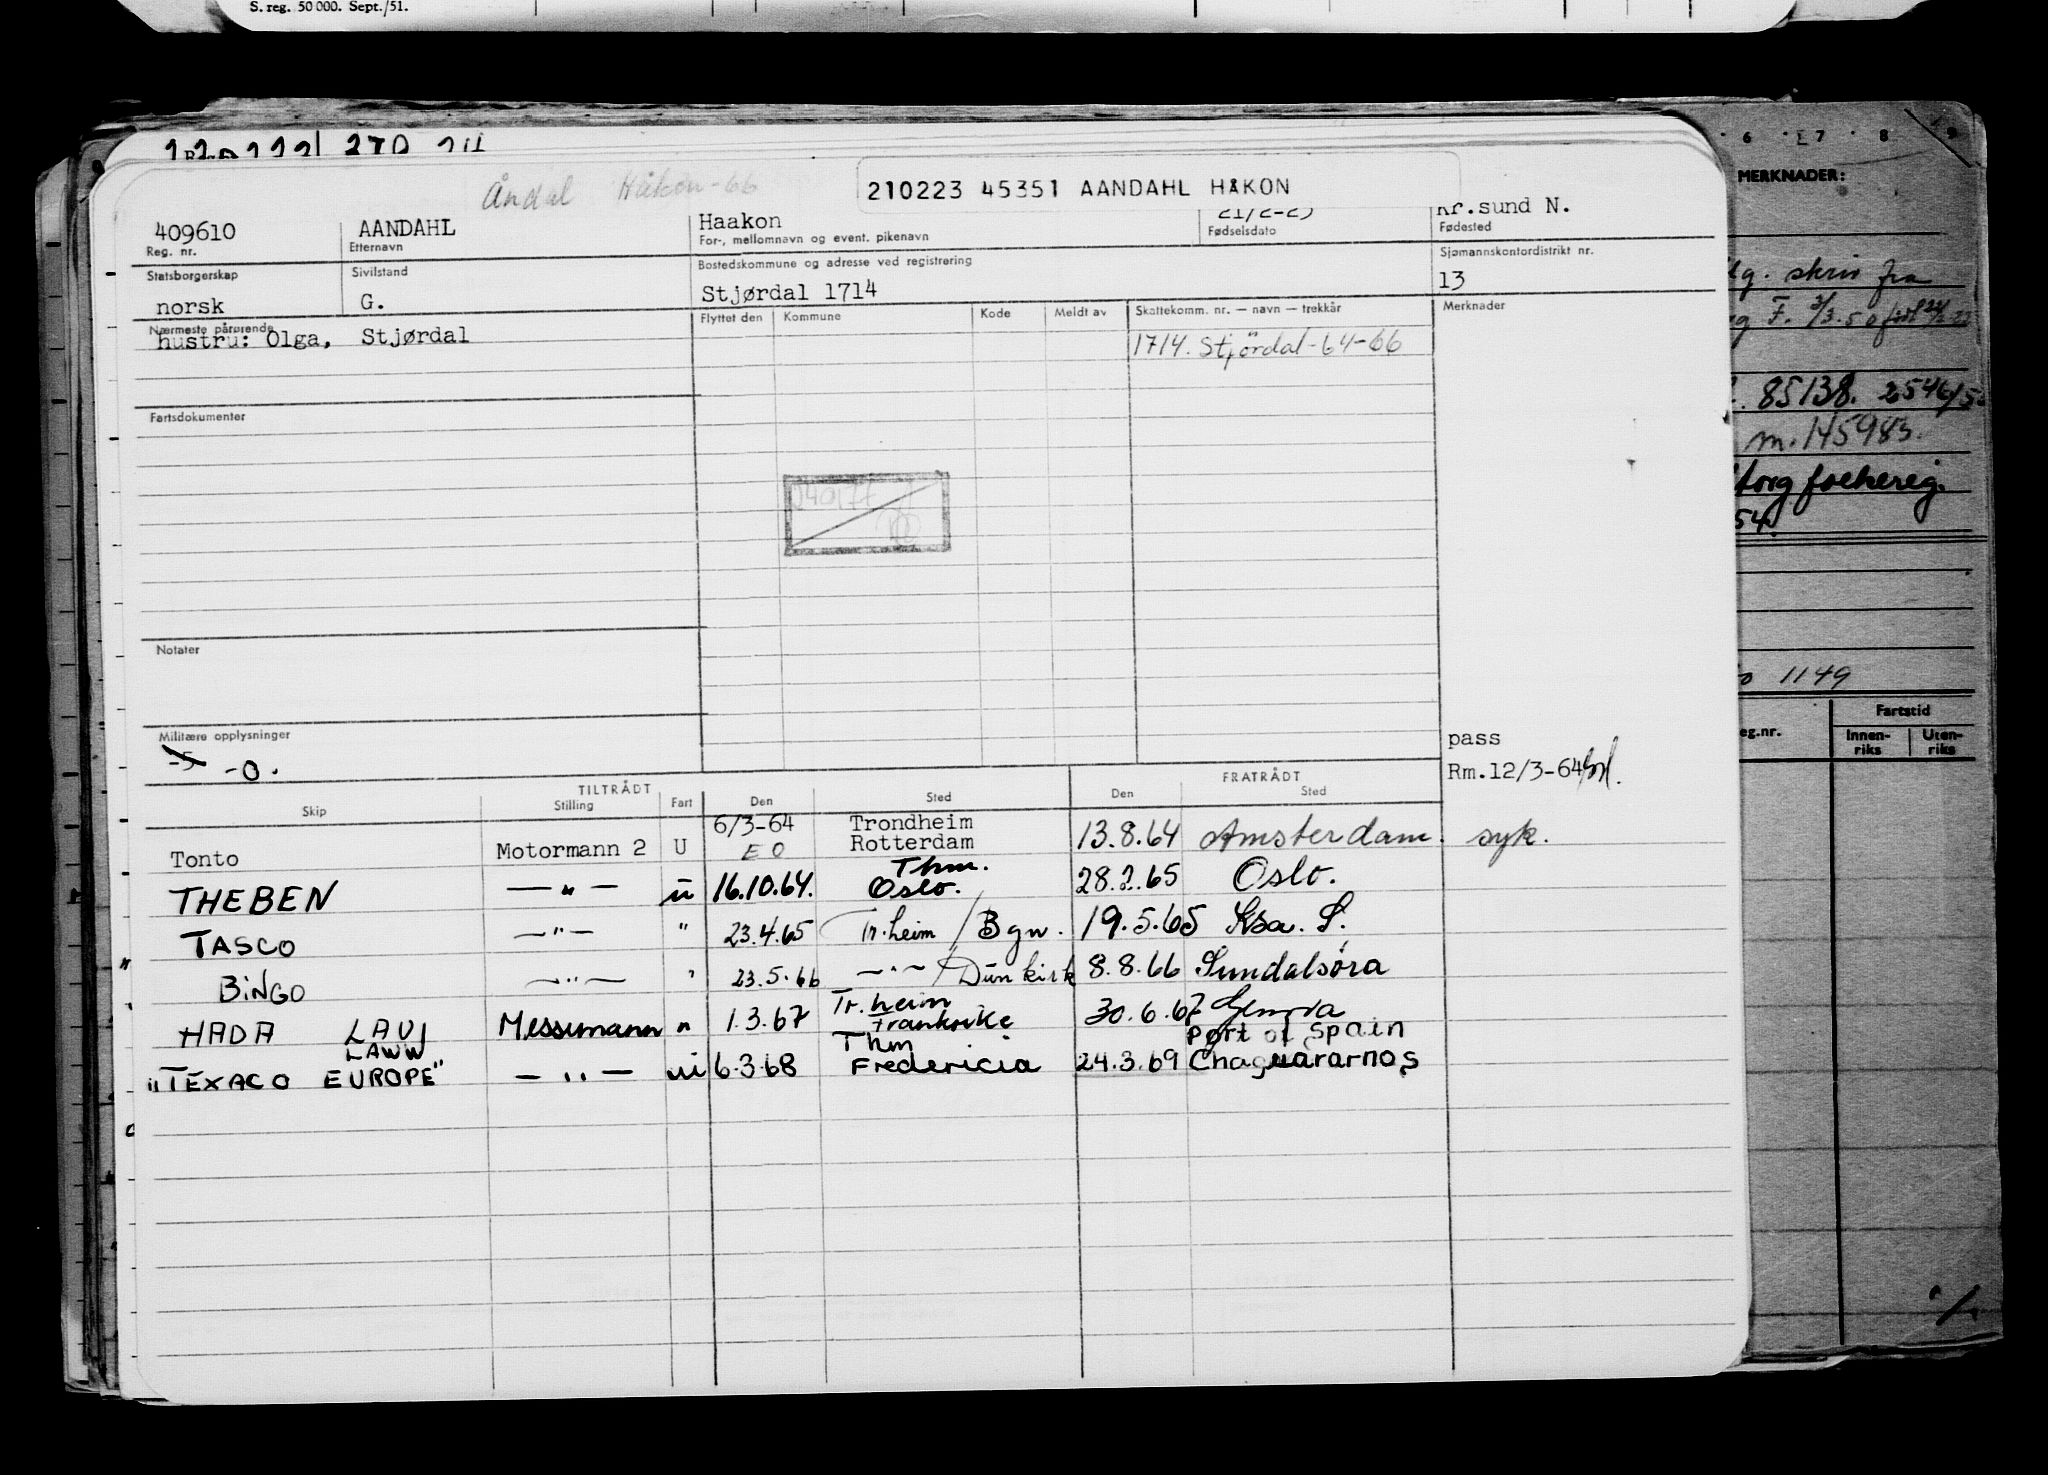 S. reg. 50 000. Sept./51.
Åndal Håkon-66
210223 45351 AANDAHL HÅKON
409610 AANDAHL Haakon 21/2-23 Kr.sund N.
Reg. nr. Etternavn For-, mellomnavn og event. pikenavn Fødselsdato Fødested
Statsborgerskap Sivilstand Bostedskommune og adresse ved registrering Sjømannskontordistrikt nr.
norsk G. Stjørdal 1714 13
Nærmeste pårørende Flyttet den Kommune Kode Meldt av Skattekomm. nr. — navn — trekkår Merknader
hustru: Olga, Stjørdal 1714. Stjördal-64-66
Fartsdokumenter
Notater
Militære opplysninger
-5 -0.
pass
Rm.12/3-64
TILTRÅDT FRATRÅDT
Skip Stilling Fart Den Sted Den Sted
Tonto Motormann 2 U 6/3-64 Trondheim 13.8.64 Amsterdam. syk.
EO Rotterdam
Thm.
THEBEN —"— u 16.10.64. Oslo. 28.2.65 Oslo.
TASCO —"— " 23.4.65 Tr.heim / Bgn. 19.5.65 Ksa. S.
BiNGO —"— " 23.5.66 —"— / Dünkirk 8.8.66 Sundalsöra
Tr.heim
HADA LAUJ Messemann " 1.3.67 Frankrike 30.6.67 Genova
LAWW Thm Port of Spain
"TEXACO EUROPE" —"— ui 6.3.68 Fredericia 24.3.69 Chaguararnas
6 7 8 9
MERKNADER:
skriv fra
85138. 2546/5
m. 145983.
54.
1149
Fartstid
eg.nr. Innen-riks Uten-riks